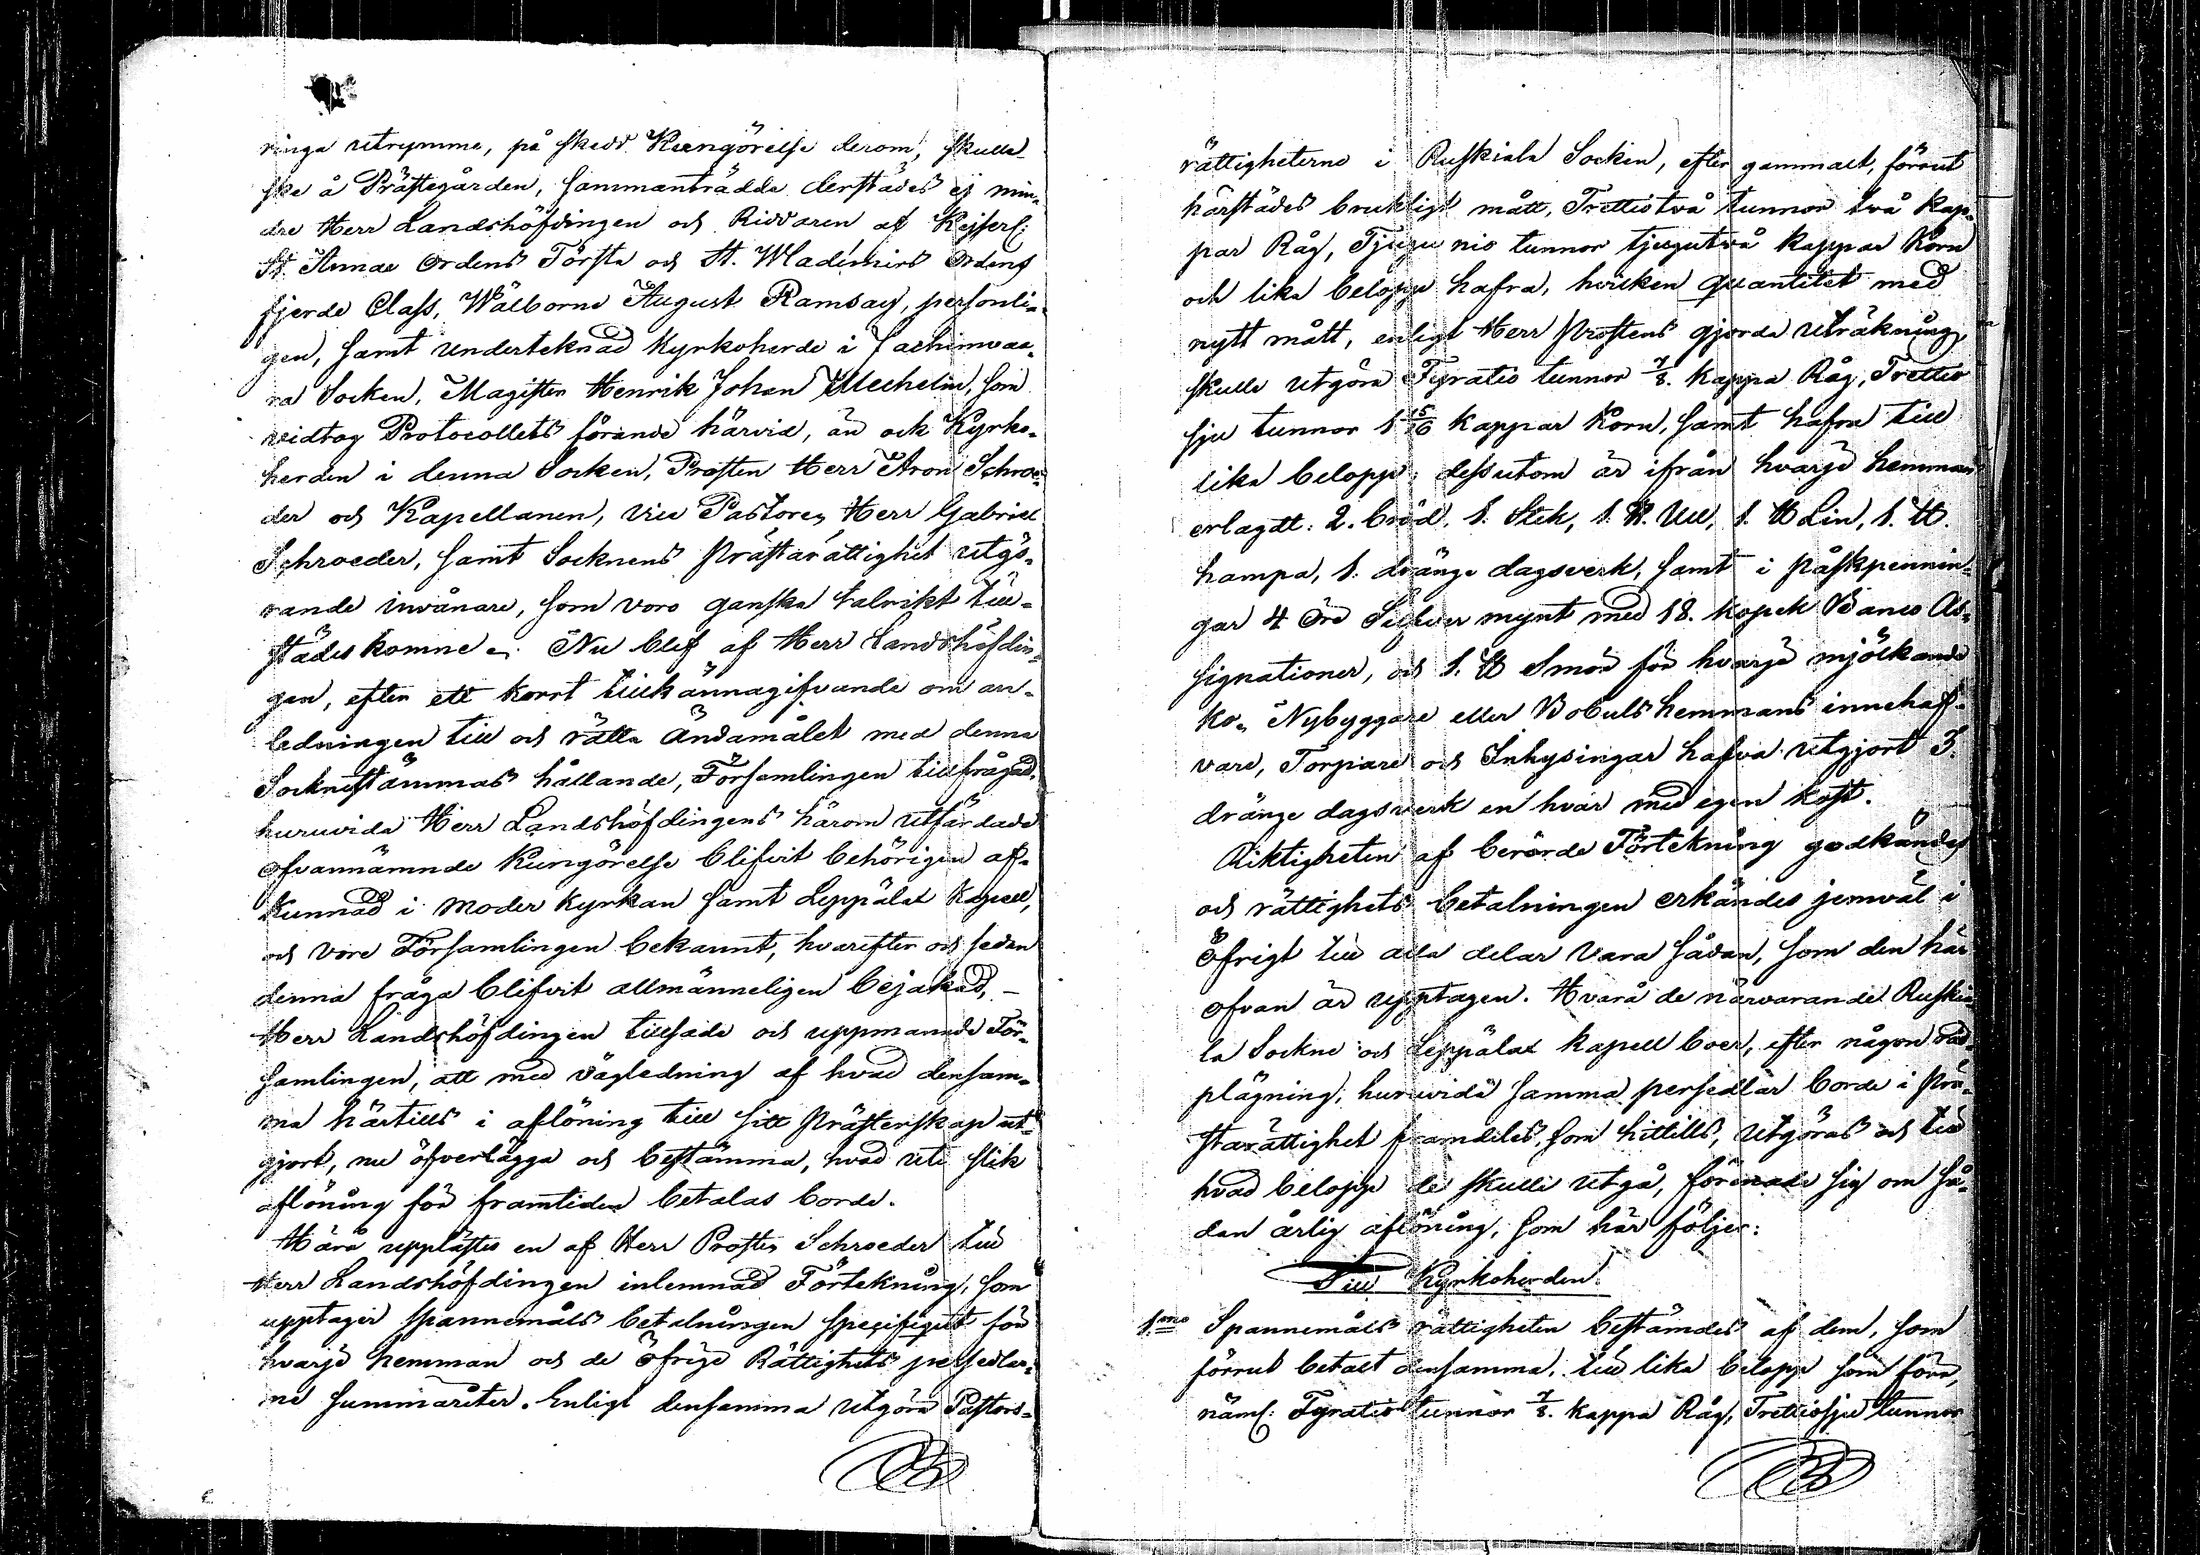 ringa utrymme, på skedd Kungörelse derom, skulle
ske å Prästegården, sammanträdde derstädes ej min-
dre Herr Landshöfdingen och Riddaren af Kejserl:
St. Annae Ordens Första och St. Wladimirs Ordens
fjerde Class, Wälborne August Ramsay, personli-
gen, samt undertecknad Kyrkoherde i Jaakimvaa-
ra Socken, Magister Henrik Johan Mechelin, som
vidtog Protocollets förande härvid, än ock Kyrko-
herden i denna Socken, Prosten Herr Aron Schroe-
der och Kapellanen, Vice Pastoren Herr Gabriel
Schroeder, samt Socknens Prästarättighet utgö-
rande invånare, som voro ganska talrikt till-
städeskomne. Nu blef af Herr Landshöfdin-
gen, efter ett kort tillkännagifvande om an-
ledningen till och rätta Ändamålet med denna
Socknestämmas hållande, Församlingen tillfrågad,
huruvida Herr Landshöfdingens härom utfärdade
ofvannämnde Kungörelse blifvit behörigen af-
kunnad i moder kyrkan samt Leppälax Kapell,
och vore Församlingen bekannt, hvarefter och sedan
denna fråga blifvit allmänneligen bejakad, –
Herr Landshöfdingen tillsade och uppmanade För-
samlingen, att med vägledning af hvad densam-
ma härtills i aflöning till sitt Prästerskap ut-
gjort, nu öfverlägga och bestämma, hvad uti slik
aflöning för framtiden betalas borde.
Härå upplästes en af Herr Prosten Schroeder till
Herr Landshöfdingen inlemnad Förtekning, som
upptager spannemåls betalningen specifiqut för
hvarje hemman och de öfrige Rättighets persedlar-
ne summariter. Enligt densamma utgöra Pastors-
rättigheterne i Ruskiala Socken, efter gammalt, förrut
härstädes brukligt mått, Trettiotvå tunnor två Kap-
par Råg, Tjugu nio tunnor tjugutvå kappar Korn
och lika belopp hafra, hvilken quantitet med
nytt mått, enligt Herr Prostens gjorda uträkning,
skulle utgöra Fyratio tunnor 7/8. kappa Råg, Trettio
sju tunnor 1 15/16 kappar Korn, samt hafra till
lika belopp; dessutom är ifrån hvarje hemman
erlagdt: 2. bröd, 1. Stek, 1. ℔. Ull, 1. ℔ Lin, 1. ℔.
hampa, 1. dränge dagsverk, samt i påskpennin-
gar 4 öre Silfver mynt med 18. kopek Banco As-
signationer, och 1. ℔ Smör för hvarje mjölkande
ko. Nybyggare eller Bobuls hemmans innehaf-
vare, Torpare och Inhysingar hafva utgjort 3.
dränge dagsverk en hvar med egen kost.
Riktigheten af berörde Förtekning godkändes
och rättighets betalningen erkändes jemväl i
Öfrigt till alla delar vara sådan, som den här
ofvan är upptagen. Hvarå de närvarande Ruskia-
la Sockne och Leppälax kapell boer, efter någon råd-
plägning, huruvida samma persedlar borde i Prä-
starättighet framdeles, som hittills, utgöras och till
hvad belopp de skulle utgå, förenade sig om så-
dan årlig aflöning, som här följer:
Till Kyrkoherden.
1:mo Spannemåls rättigheten bestämdes af dem, som
förrut betalt densamma, till lika belopp som förr,
näml: Fyratio tunnor 7/8. kappa Råg, Trettiosju tunnor